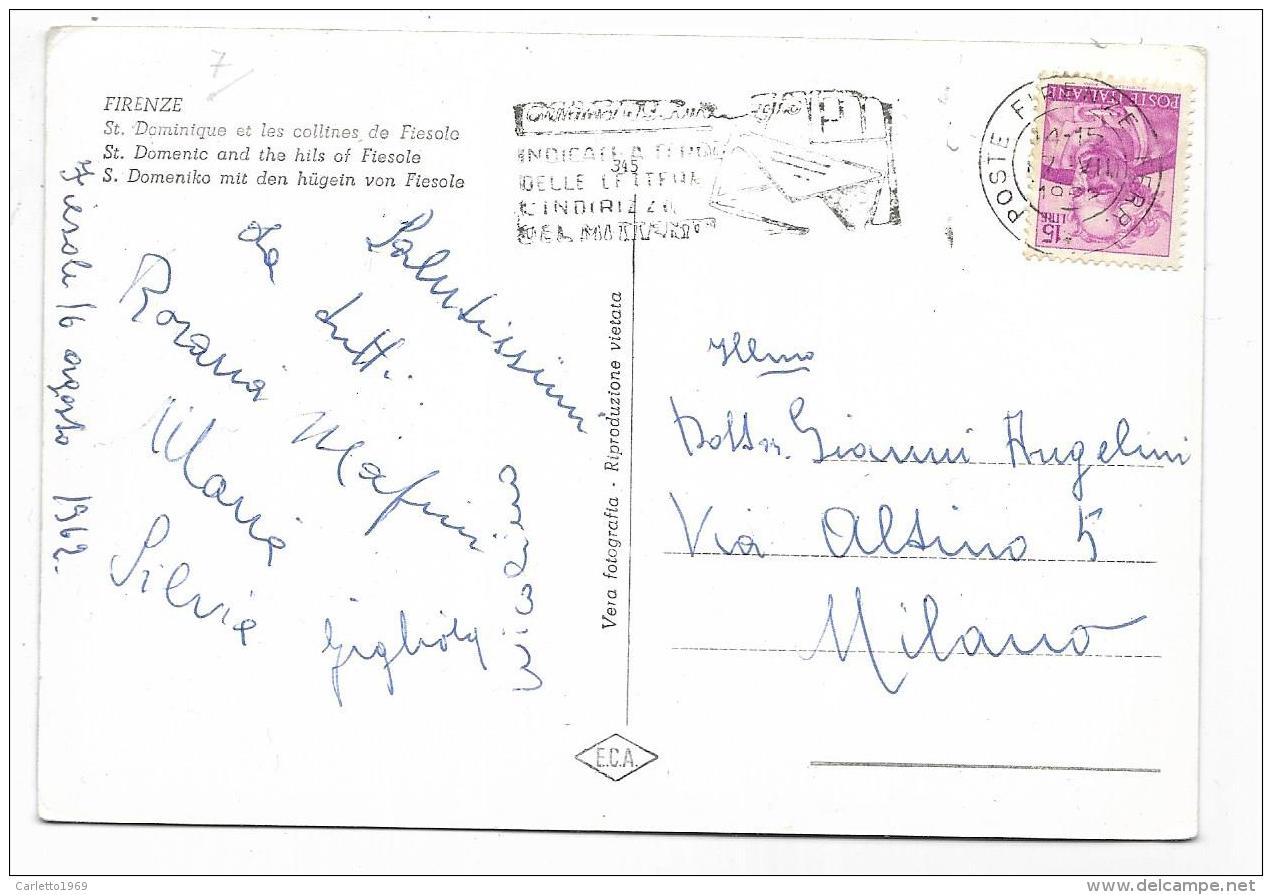 7
FIRENZE
St. Dominique et les collines de Fiesole
St. Domenic and the hils of Fiesole
S. Domeniko mit den hügein von Fiesole
Fiesole 16 agosto 1962.
Salutissimi
da tutti.
Rosaria Mafini
Maria
Silvia
Gigliola
INDICATE A TERGO
DELLE LETTERE
L'INDIRIZZO
DEL MITTENTE
345
POSTE FIRENZE FERR
14-15
POSTE ITALIANE
LIRE 15
Vera fotografia - Riproduzione vietata
E.C.A.
Illmo
Dottr. Gianni Angelini
Via Altino 5
Milano
Carletto1969
www.delcampe.net